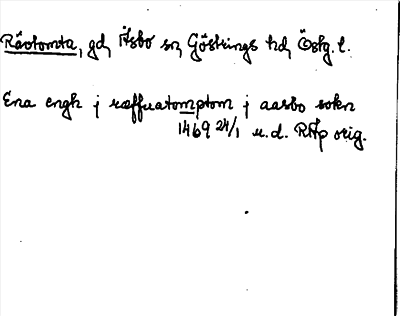 Rävtomta, gd, Åsbo sn, Göstrings hd, Östg. l.
Ena engh j ræffuatomptom j aasbo sokn
1469 24/1 u.d. RAp orig.